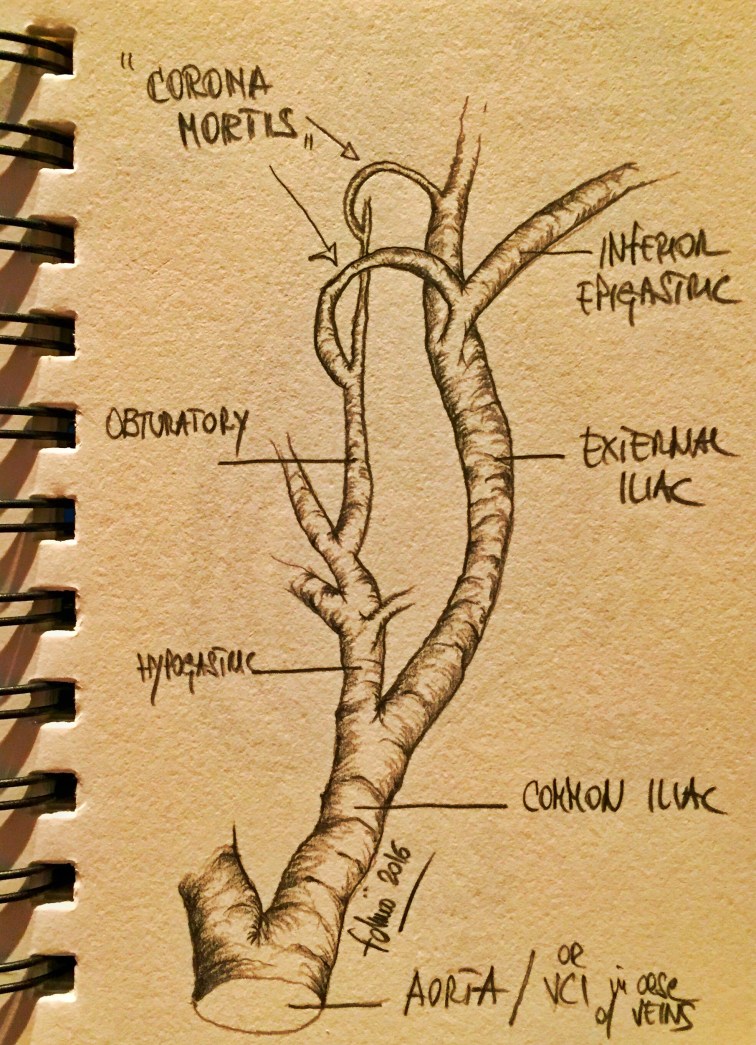 "CORONA
MORTIS"
INFERIOR
EPIGASTRIC
OBTURATORY
EXTERNAL
ILIAC
HYPOGASTRIC
COMMON ILIAC
2016
AORTA / OR
VCI in case
of VEINS